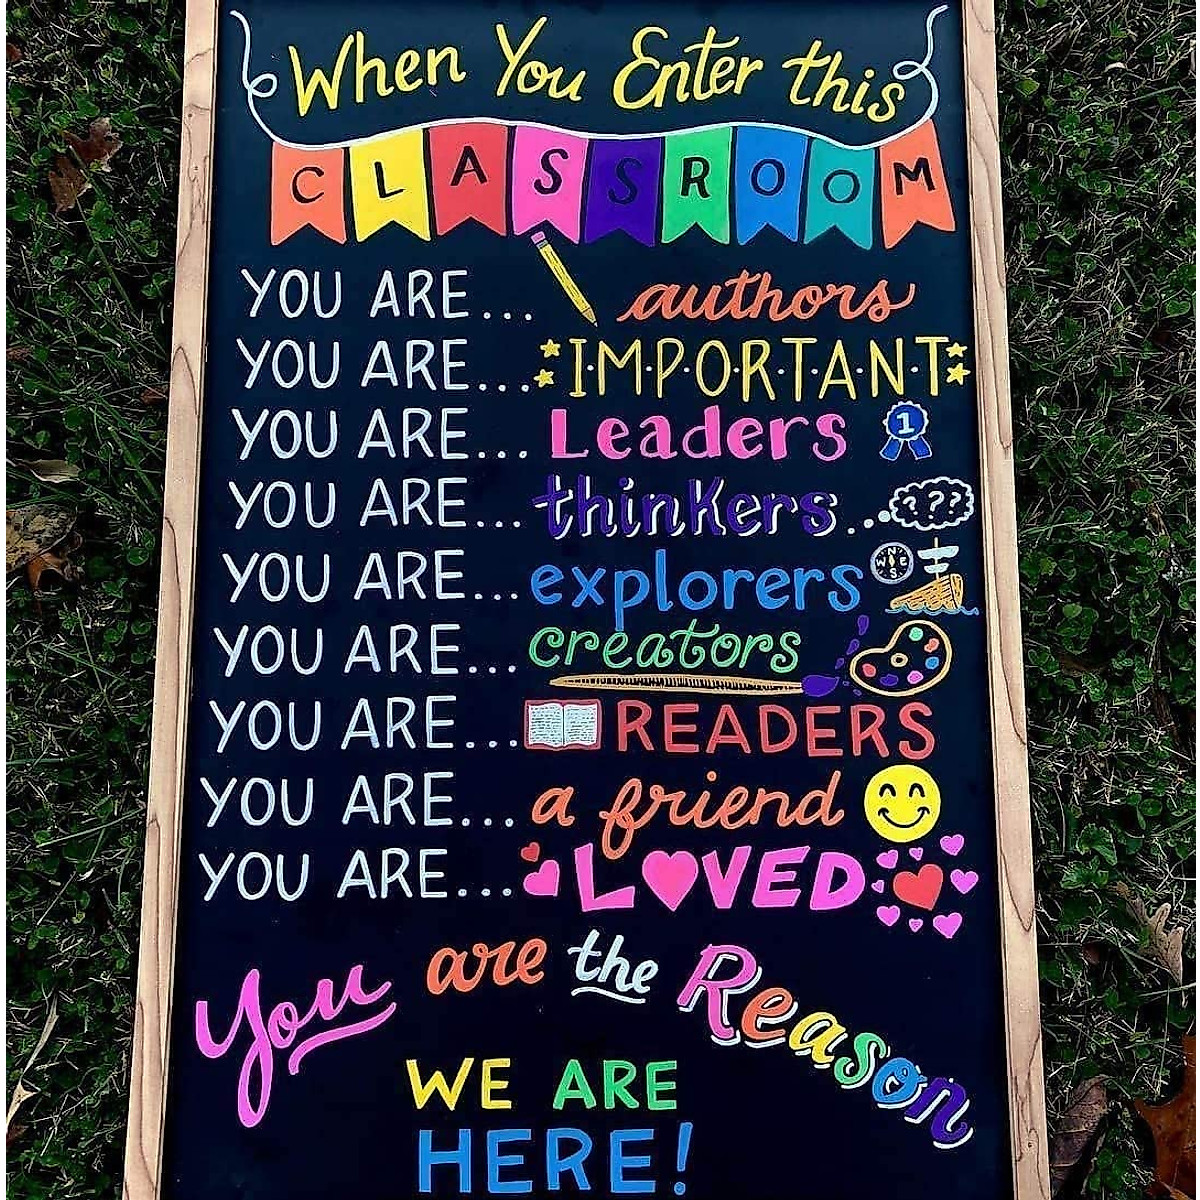 When You Enter this
CLASSROOM
YOU ARE... authors
YOU ARE... I·M·P·O·R·T·A·N·T
YOU ARE... Leaders 1
YOU ARE... thinkers... ???
YOU ARE... explorers N W E S
YOU ARE... creators
YOU ARE... READERS
YOU ARE... a friend
YOU ARE... L♥VED
You are the Reason
WE ARE
HERE!